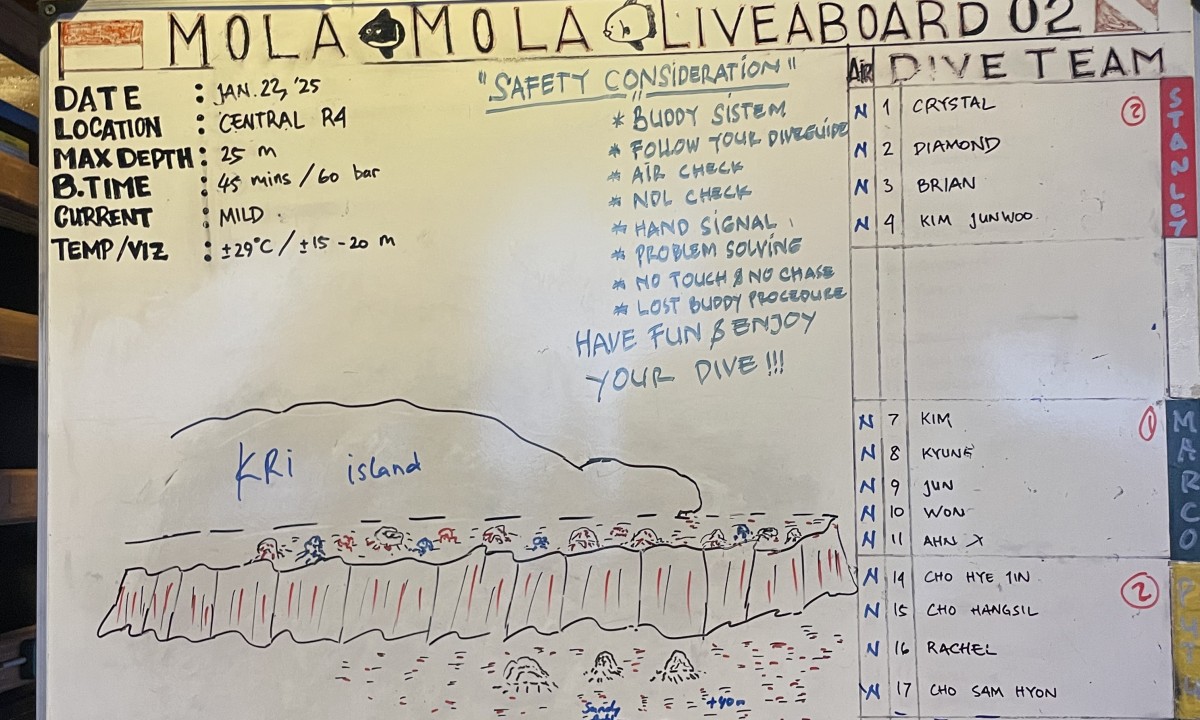 MOLA MOLA LIVEABOARD 02
DATE : JAN. 22, '25
LOCATION : CENTRAL R4
MAX DEPTH : 25 m
B.TIME : 45 mins / 60 bar
CURRENT : MILD
TEMP/VIZ : ±29°C / ±15-20 m
"SAFETY CONSIDERATION"
* BUDDY SISTEM
* FOLLOW YOUR DIVEGUIDE
* AIR CHECK
* NDL CHECK
* HAND SIGNAL
* PROBLEM SOLVING
* NO TOUCH & NO CHASE
* LOST BUDDY PROCEDURE
HAVE FUN & ENJOY
YOUR DIVE !!!
KRI island
Sandy
+40m
Air DIVE TEAM
N 1 CRYSTAL 2
N 2 DIAMOND
N 3 BRIAN
N 4 KIM JUNWOO
STANLEY
N 7 KIM 1
N 8 KYUNG
N 9 JUN
N 10 WON
N 11 AHN X
MARCO
N 14 CHO HYE JIN 2
N 15 CHO HANGSIL
N 16 RACHEL
N 17 CHO SAM HYON